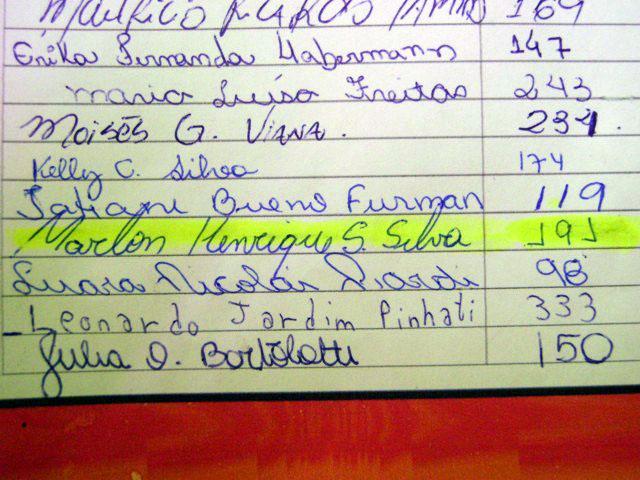 Maurício 169
Erika Fernanda Habermann 147
Maria Luísa Freitas 243
Moisés G. Viana. 234.
Kelly C. Silva 174
Tatiane Bueno Furman 119
Marlon Henrique S. Silva 191
Luara Nicolái 98
Leonardo Jardim Pinhati 333
Julia O. Bortolotti 150